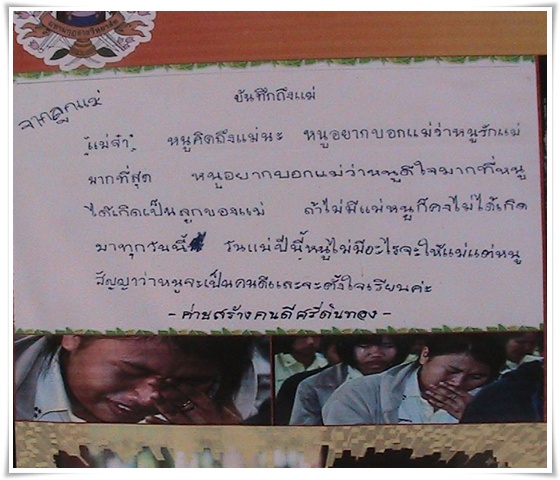 บันทึกถึงแม่
จากลูกแม่
"แม่จ๋า" หนูคิดถึงแม่นะ หนูอยากบอกแม่ว่าหนูรักแม่
มากที่สุด หนูอยากบอกแม่ว่าหนูดีใจมากที่หนู
ได้เกิดเป็นลูกของแม่ ถ้าไม่มีแม่หนูก็คงไม่ได้เกิด
มาทุกวันนี้ วันแม่ปีนี้หนูไม่มีอะไรจะให้แม่แต่หนู
สัญญาว่าหนูจะเป็นคนดีและจะตั้งใจเรียนค่ะ
- ค่ายสร้างคนดีศรีดินทอง -